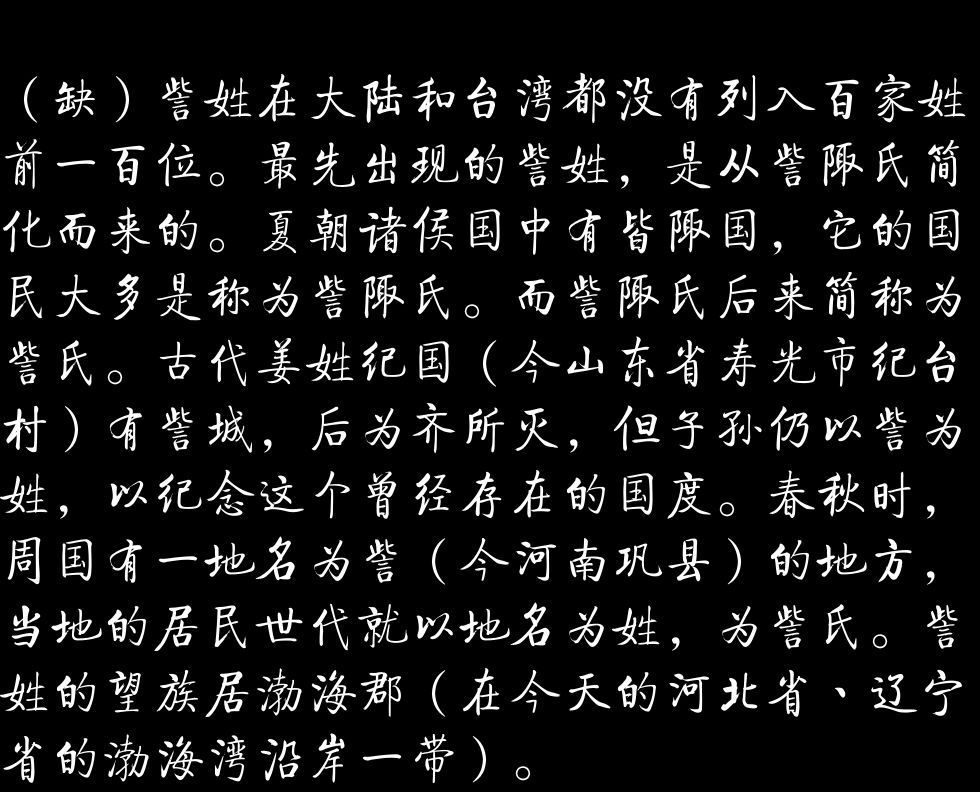 （缺）訾姓在大陆和台湾都没有列入百家姓
前一百位。最先出现的訾姓，是从訾陬氏简
化而来的。夏朝诸侯国中有皆陬国，它的国
民大多是称为訾陬氏。而訾陬氏后来简称为
訾氏。古代姜姓纪国（今山东省寿光市纪台
村）有訾城，后为齐所灭，但子孙仍以訾为
姓，以纪念这个曾经存在的国度。春秋时，
周国有一地名为訾（今河南巩县）的地方，
当地的居民世代就以地名为姓，为訾氏。訾
姓的望族居渤海郡（在今天的河北省、辽宁
省的渤海湾沿岸一带）。